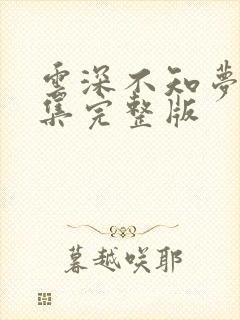 雲深不知夢
集完整版
暮越咲耶